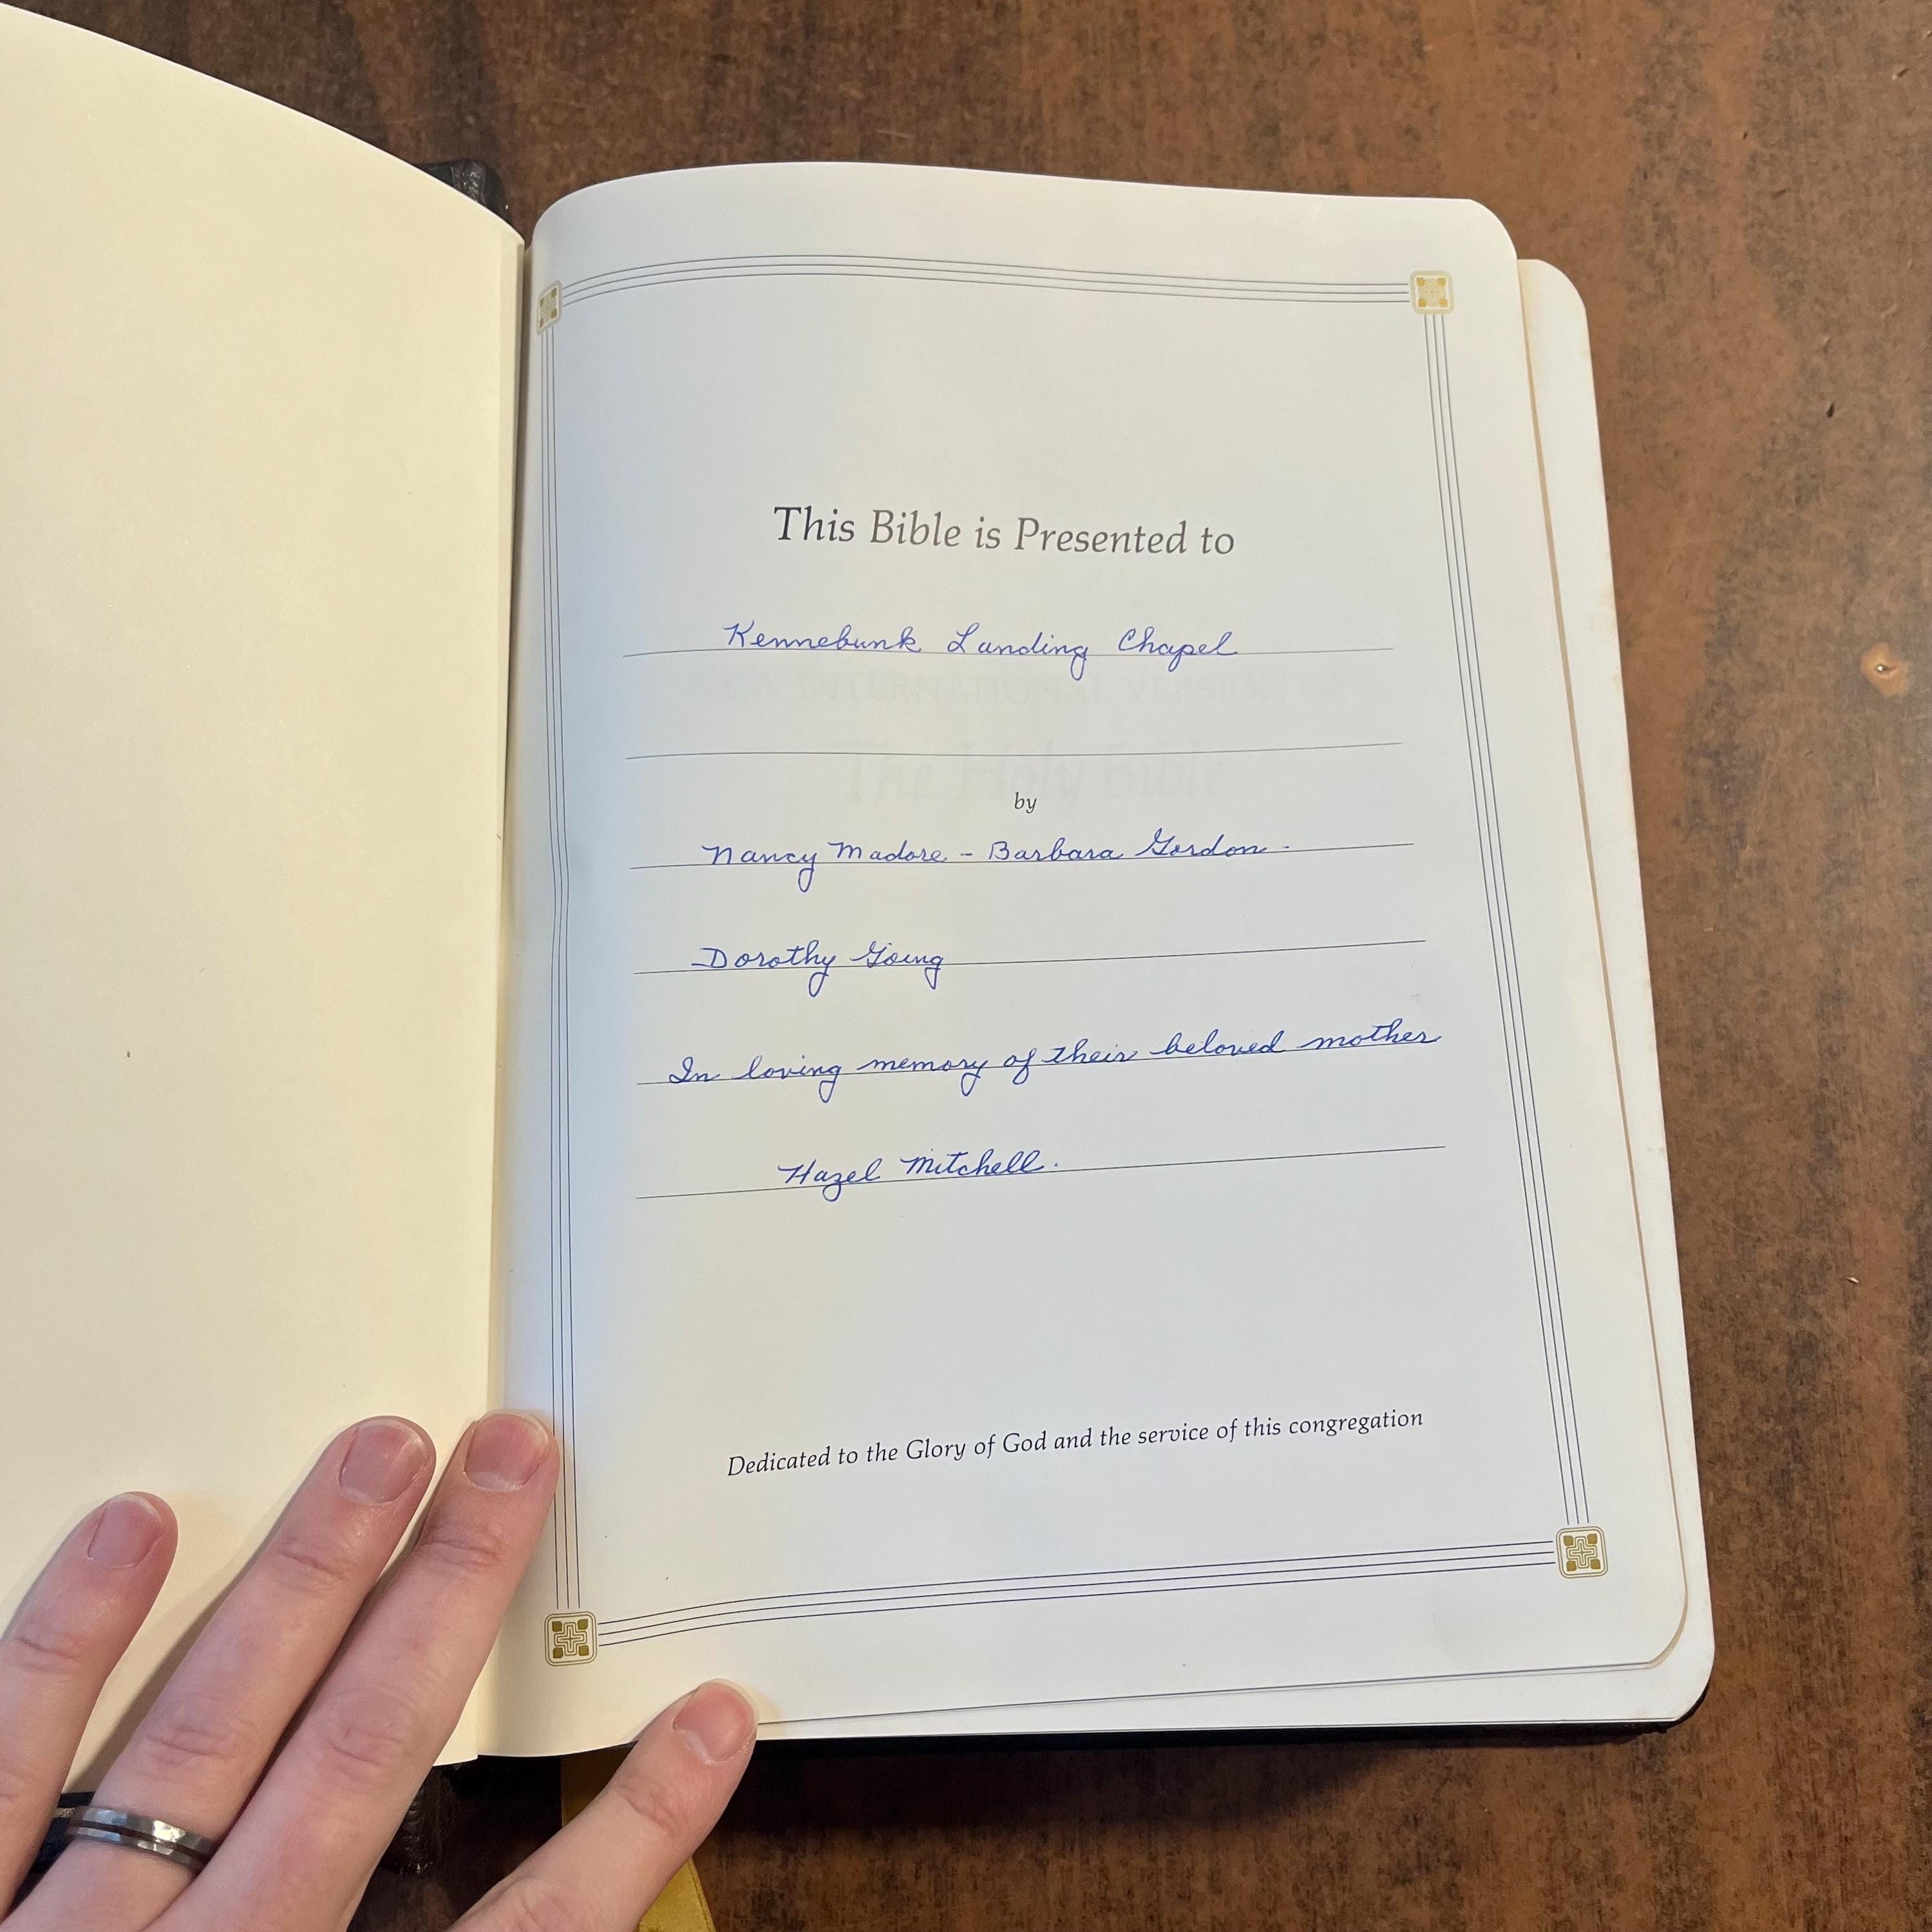 This Bible is Presented to
Kennebunk Landing Chapel
NEW INTERNATIONAL VERSION OF
The Holy Bible
by
Nancy Madore - Barbara Gordon -
Dorothy Going
In loving memory of their beloved mother
Hazel Mitchell.
Dedicated to the Glory of God and the service of this congregation